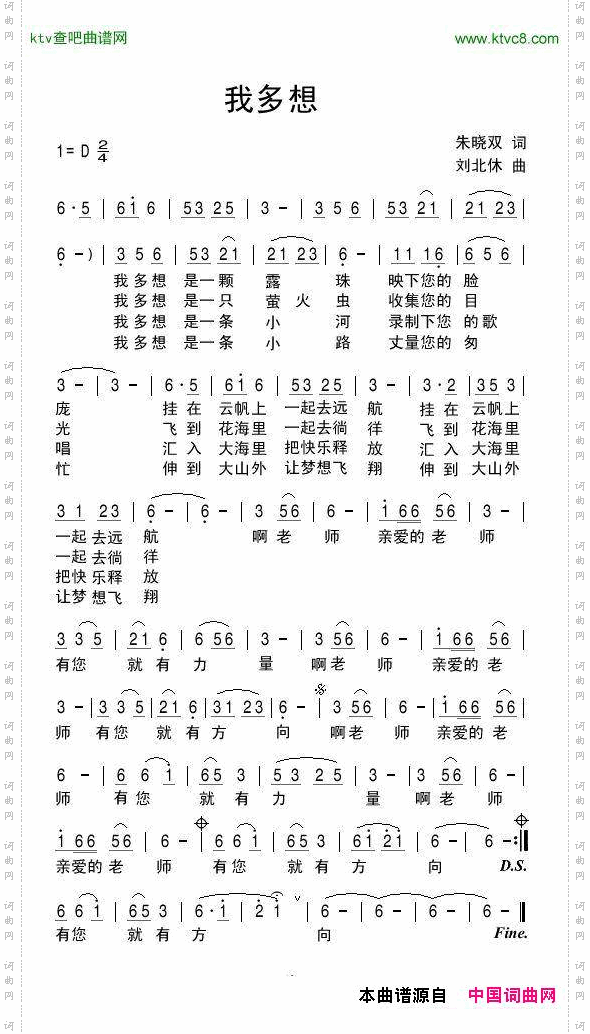 ktv查吧曲谱网 www.ktvc8.com
我多想
1= D 2/4 朱晓双 词
刘北休 曲
6·5 | 6i 6 | 53 25 | 3 - | 3 5 6 | 53 21 | 21 23 |
6 - ) | 3 5 6 | 53 21 | 21 23 | 6 - | 11 16 | 6 5 6 |
我多想 是一颗 露 珠 映下您的 脸
我多想 是一只 萤 火 虫 收集您的 目
我多想 是一条 小 河 录制下您 的歌
我多想 是一条 小 路 丈量您的 匆
3 - | 3 - | 6·5 | 6i 6 | 53 25 | 3 - | 3·2 | 35 3 |
庞 挂 在 云帆上 一起去远 航 挂 在 云帆上
光 飞 到 花海里 一起去徜 徉 飞 到 花海里
唱 汇 入 大海里 把快乐释 放 汇 入 大海里
忙 伸 到 大山外 让梦想飞 翔 伸 到 大山外
3 1 23 | 6 - | 6 - | 3 56 | 6 - | i66 56 | 3 - |
一起 去远 航 啊 老 师 亲爱的 老 师
一起 去徜 徉
把快 乐释 放
让梦 想飞 翔
3 3 5 | 21 6 | 6 56 | 3 - | 3 56 | 6 - | i 66 56 |
有您 就 有 力 量 啊老 师 亲爱的 老
3 - | 3 3 5 | 21 6 | 31 23 | 6 - | 3 56 | 6 - | i 66 56 |
师 有您 就 有 方 向 啊老 师 亲爱的 老
6 - | 6 6 i | 65 3 | 53 25 | 3 - | 3 56 | 6 - |
师 有您 就 有 力 量 啊 老 师
i 66 56 | 6 - | 6 6 i | 65 3 | 6i 2i | 6 - | 6 - :||
亲爱的 老 师 有您 就 有 方 向 D.S.
6 6 i | 65 3 | 6·i | 2 i | 6 - | 6 - | 6 - | 6 - ||
有您 就 有 方 向 Fine.
本曲谱源自 中国词曲网